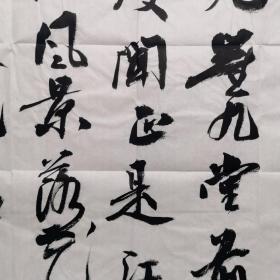 崔九堂前
度闻正是江
风景落花